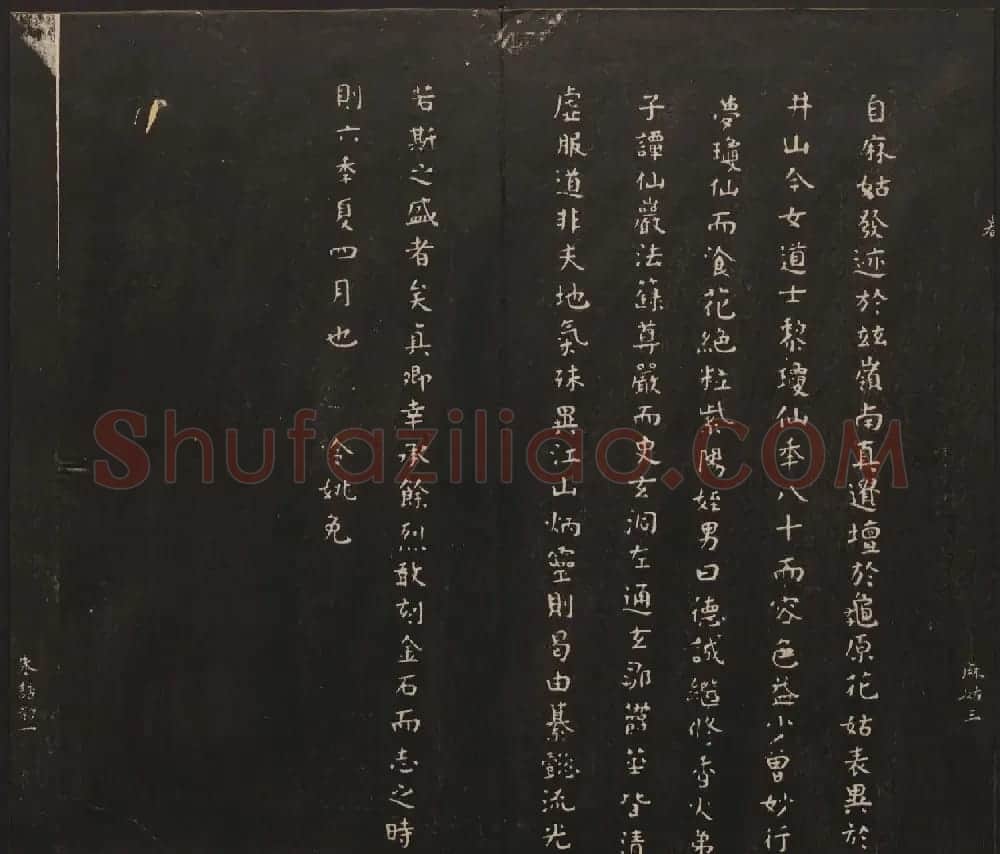 麻姑三
自麻姑發迹於茲嶺南真遺壇於龜原花姑表異於
井山今女道士黎瓊仙秊八十而容色益少曾妙行
夢瓊仙而飡花絕粒紫陽姪男曰德誠繼修香火弟
子譚仙巖法籙尊嚴而史玄洞左通玄鄒鬱華皆清
虛服道非夫地氣殊異江山炳靈則曷由纂懿流光
若斯之盛者矣真卿幸承餘烈敢刻金石而志之時
則六秊夏四月也 姚免
Shufaziliao.COM